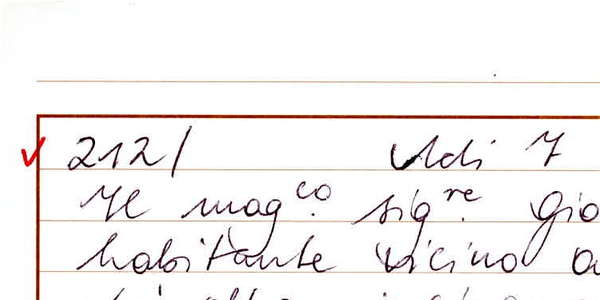 212/ Adi 7
Il mag.co sig.re Gio
habitante vicino a